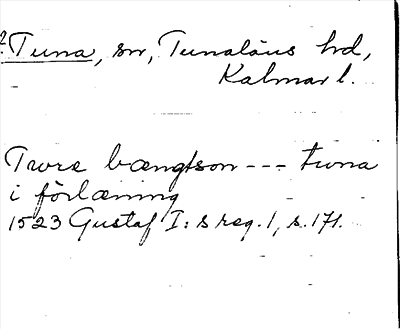 2. Tuna, sn, Tunaläns hd,
Kalmar l.
Twre bængtson --- twna
i förlæning
1523 Gustaf I:s reg. 1, s. 171.